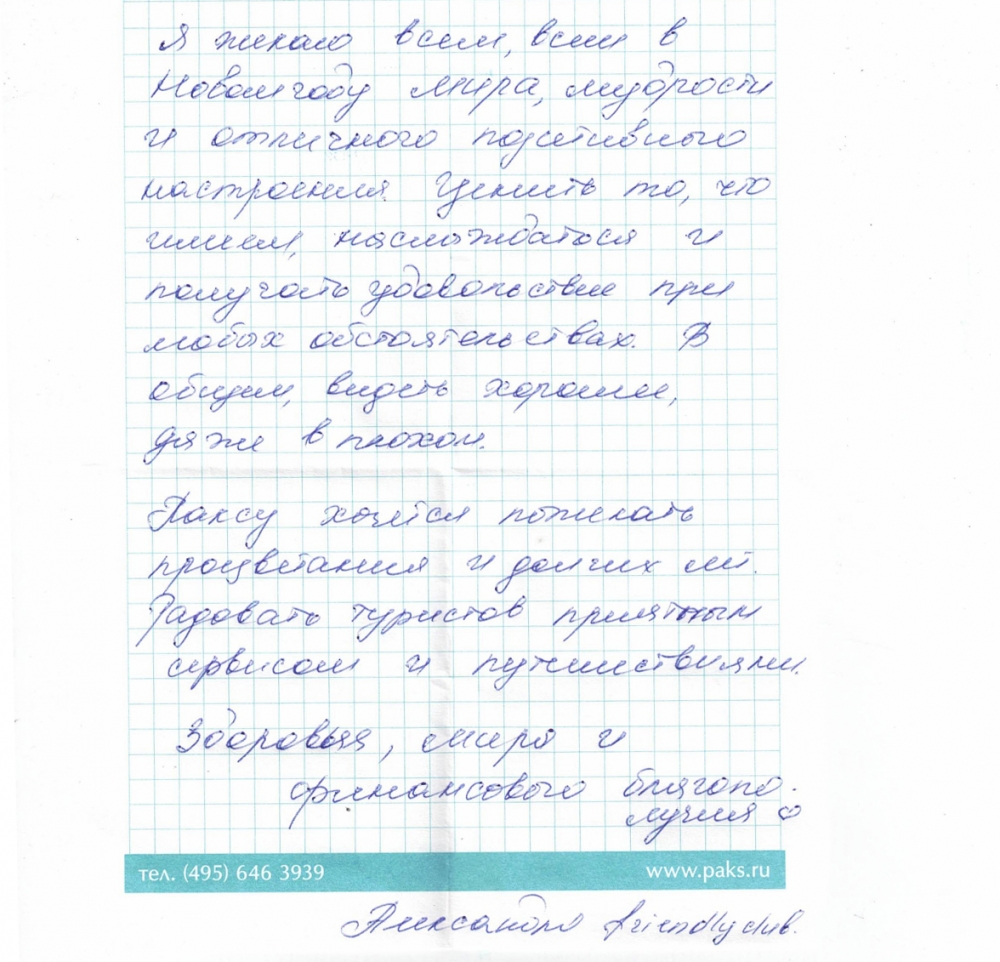 Я желаю всем, всем в
Новом году мира, мудрости
и отличного позитивного
настроения. Ценить то, что
имеем, наслаждаться и
получать удовольствие при
любых обстоятельствах. В
общем, видеть хорошее,
даже в плохом.
Паксу хочется пожелать
процветания и долгих лет.
Радовать туристов приятным
сервисом и путешествиями.
Здоровья, мира и
финансового благопо-
лучия
тел. (495) 646 3939
www.paks.ru
Александра friendly club.